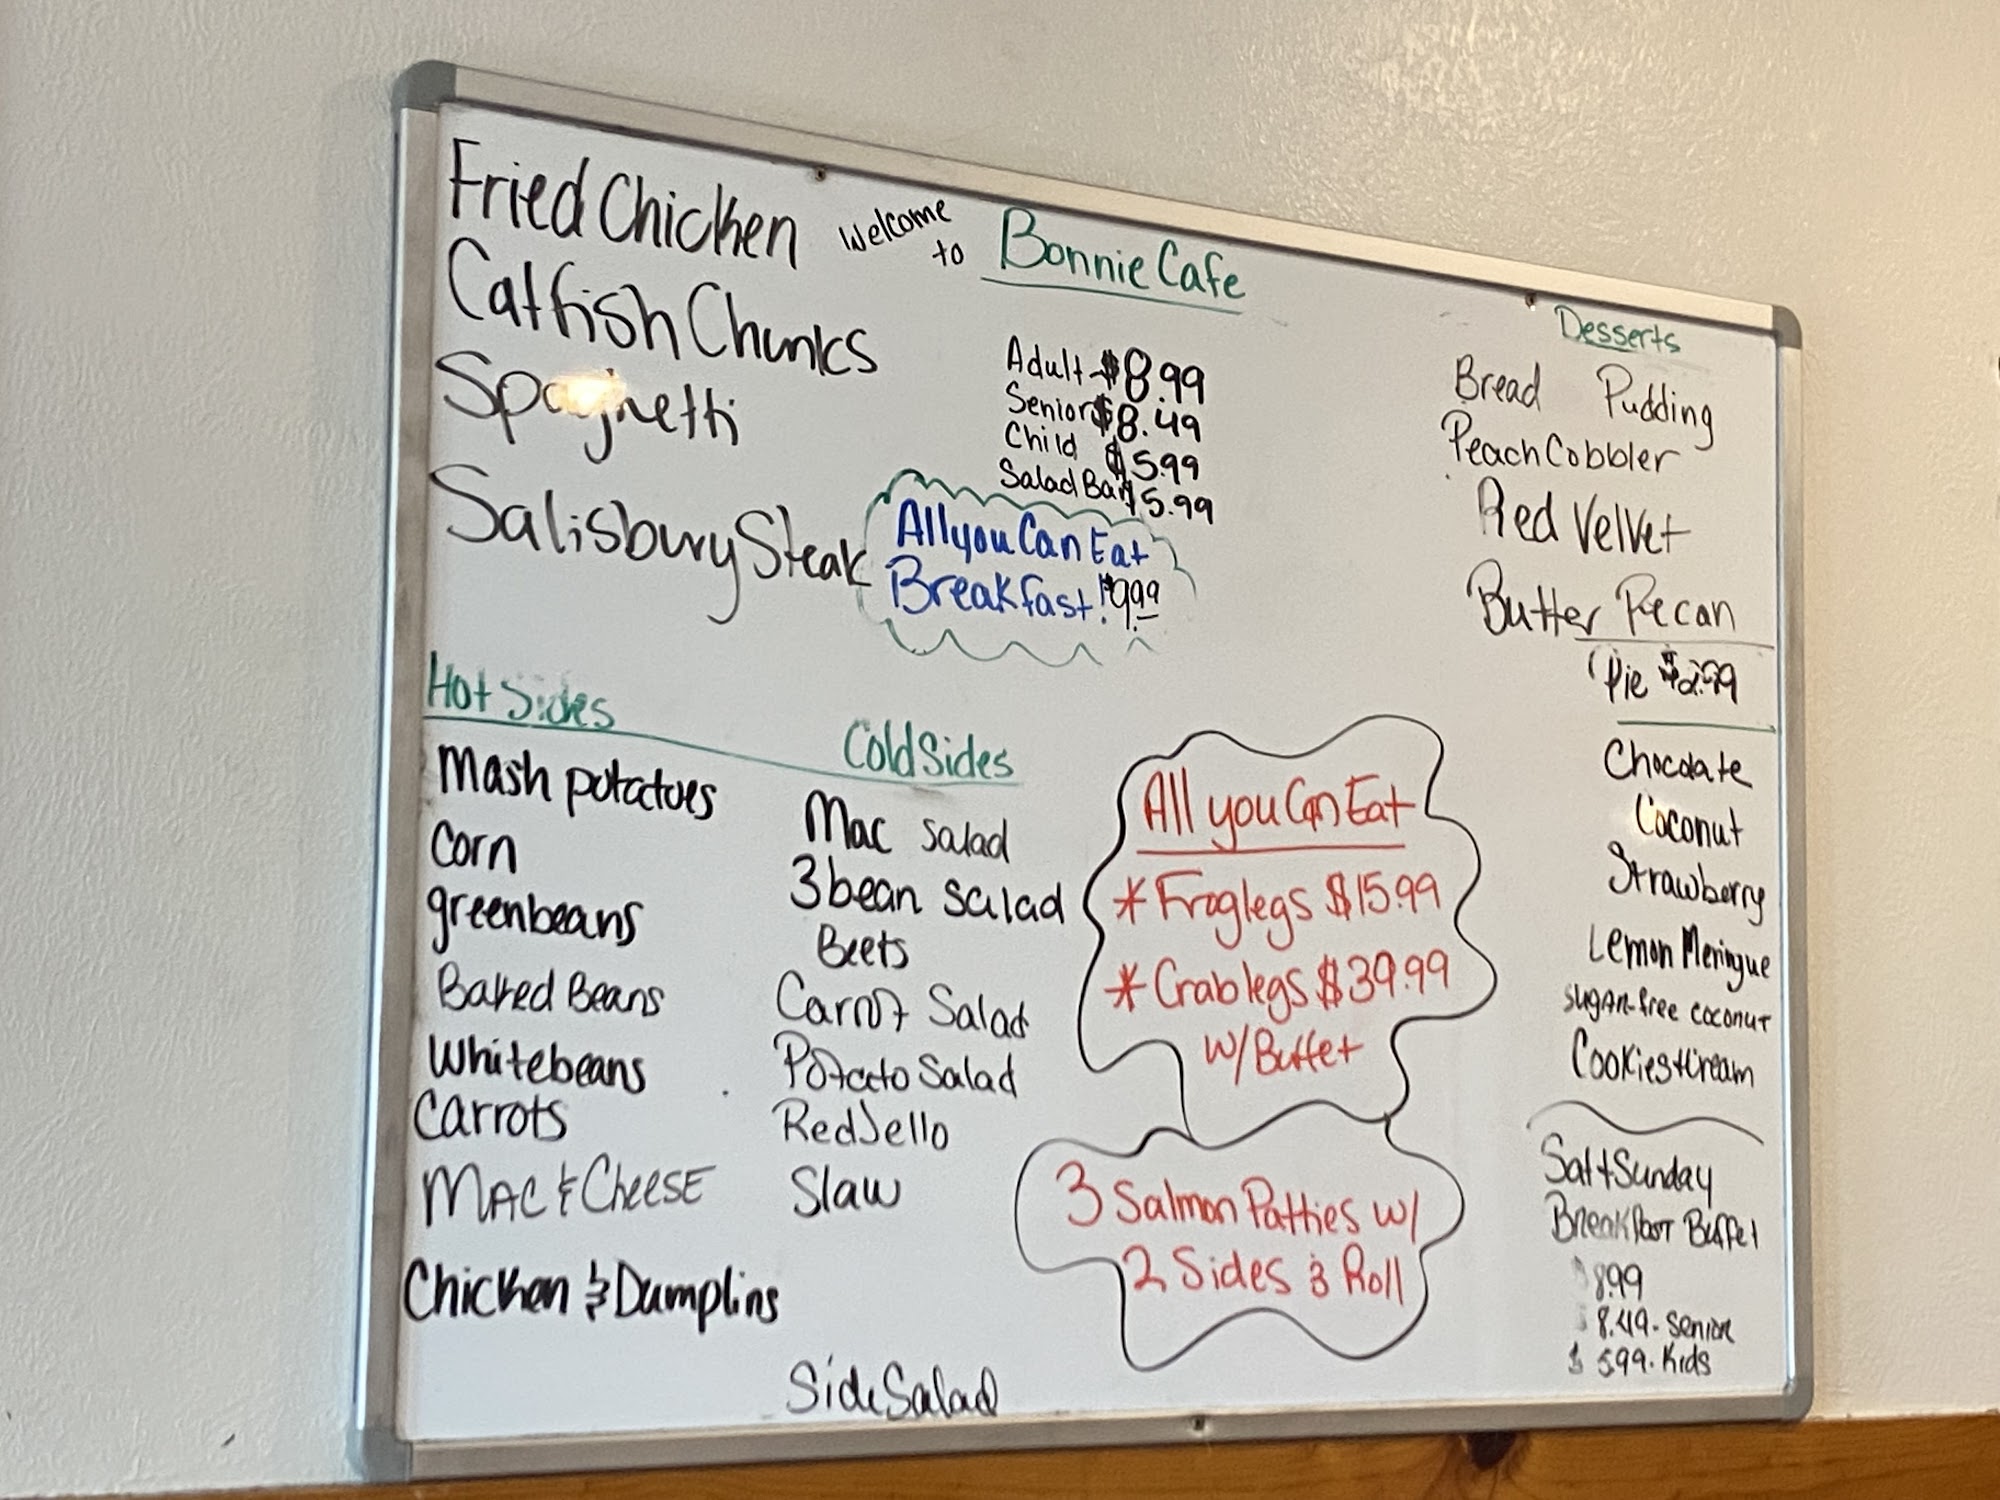 Fried Chicken
Catfish Chunks
Spaghetti
Salisbury Steak
Welcome
to
Bonnie Cafe
Adult - $8.99
Senior $8.49
Child $5.99
Salad Bar $5.99
All you Can Eat
Breakfast! $9.99
Desserts
Bread Pudding
Peach Cobbler
Red Velvet
Butter Pecan
Pie $2.99
Chocolate
Coconut
Strawberry
Lemon Meringue
sugar-free coconut
Cookies + Cream
Sat + Sunday
Breakfast Buffet
$8.99
$8.49 - Senior
$5.99 - Kids
Hot Sides
Mash potatoes
Corn
greenbeans
Baked Beans
Whitebeans
Carrots
Mac & Cheese
Chicken & Dumplins
Cold Sides
Mac salad
3 bean salad
Beets
Carrot Salad
Potato Salad
Red Jello
Slaw
Side Salad
All you Can Eat
* Froglegs $15.99
* Crab legs $39.99
w/ Buffet
3 Salmon Patties w/
2 Sides & Roll